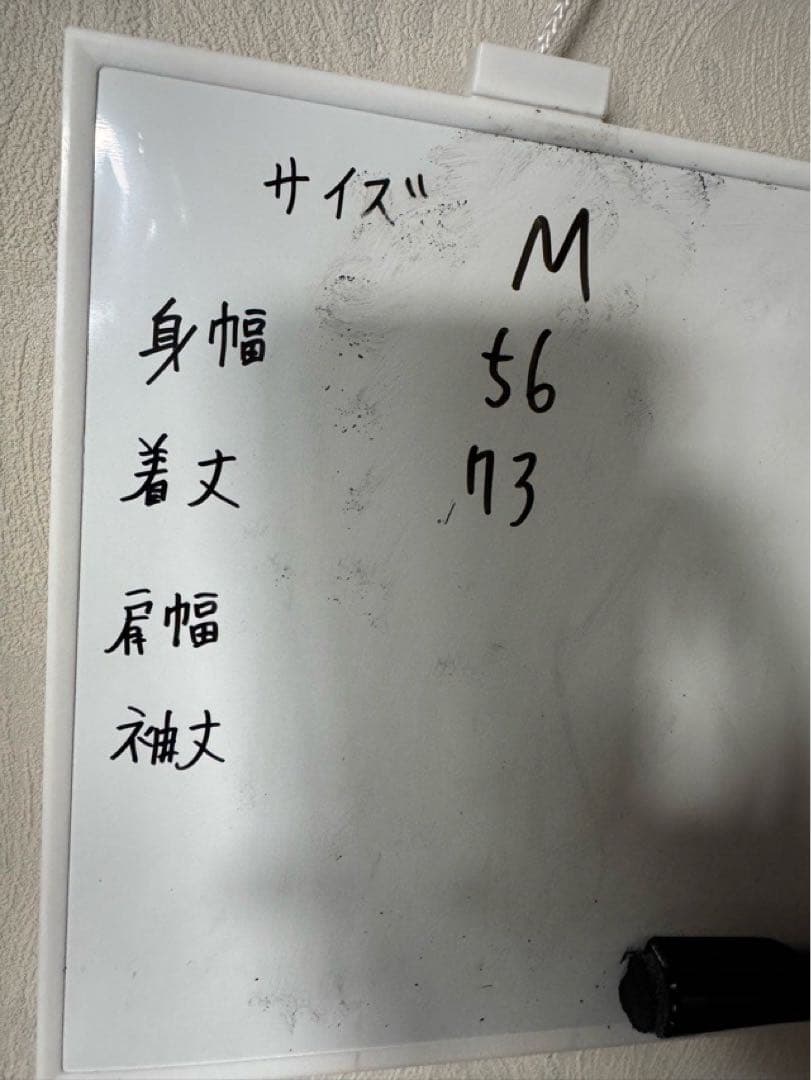 サイズ M
身幅 56
着丈 73
肩幅
袖丈